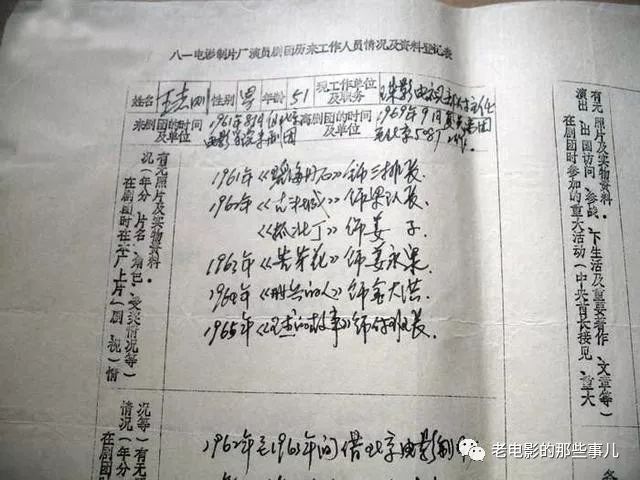 八一电影制片厂演员剧团历来工作人员情况及资料登记表
姓名 王志刚 性别 男 年龄 51 现工作单位及职务 珠影电视部主任
来剧团的时间及单位 1961年8月由北京电影学院来剧团 离剧团的时间及单位 1969年9月复员离团 北京5087
1961年《碧海丹心》饰三排长.
1962年 饰梁队长
《抓壮丁》饰姜 子
1963年《苦菜花》饰姜永泉.
1964年 的人》饰金大洪.
1965年《王杰的故事》饰付班长.
1962年至1963年间借北京电影制
有无照片及实物资料
况（年分、片名、角色、受奖情况等）
在剧团时在本厂上片（剧、视）情
况等）有无
情况（年分
在剧团时
有无照片及实物资料
演出、出国访问、参战、下生活及重要著作、文章等）
在剧团时参加的重大活动（中央首长接见、重大
老电影的那些事儿